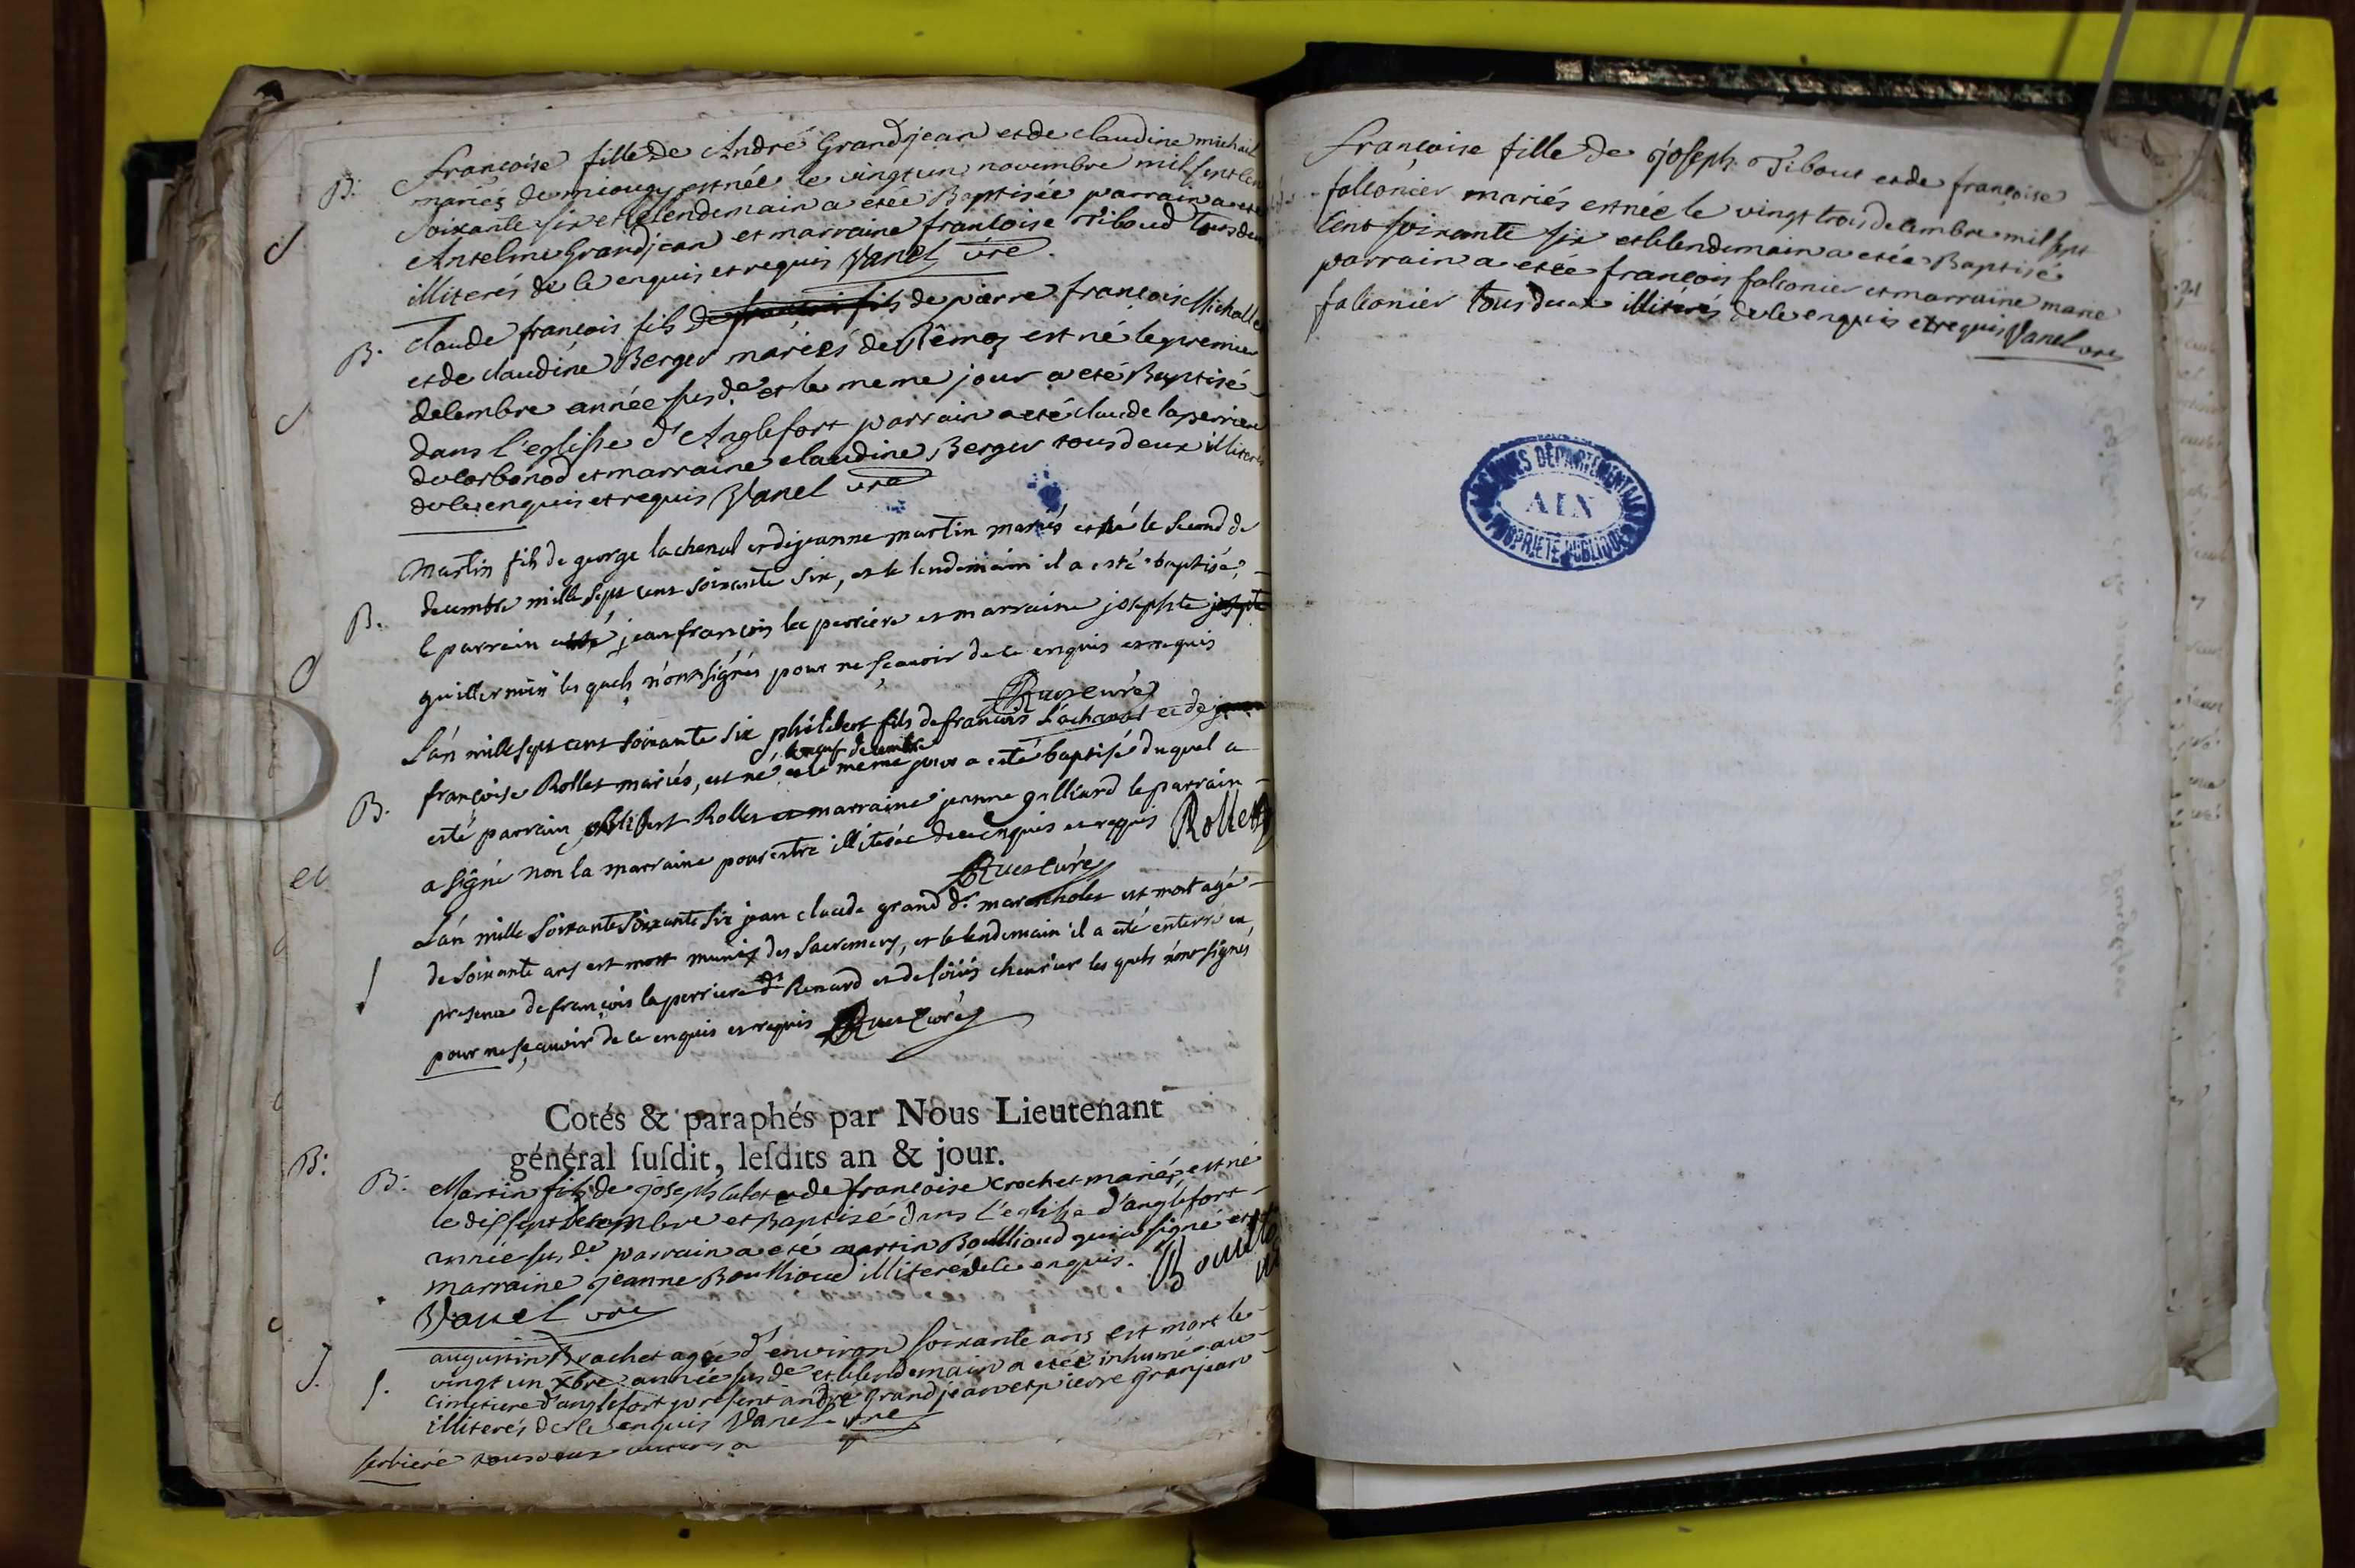 B. francoise fille de André Grandjean et de claudine michail
mariés de miougy est née le vingt un novembre mil sept cent
soixante six et le lendemain a etée Baptisée parrain a eté
Anselme Grandjean et marraine francoise Tiboud tous deux
illiterés de ce enquis et requis Vanel vre
B. claude françois fils de françois fils de pierre françois Michallet
et de claudine Berger mariés de est né le premier
decembre année susd.e et le meme jour a eté Baptisé
dans l'eglisse d'Anglefort parrain a eté claude laperriere
de Corbonod et marraine claudine Berger tous deux illiterés
de ce enquis et requis Vanel vre
Martin fils de george lachenal et de jeanne martin mariés est né le second de
B. decembre mille sept cent soixante six, et le lendemain il a esté baptisé,
le parrain a esté jean françois la perriere et marraine josephte josephte
guillermin les quels n'ont signés pour ne sçavoir de ce enquis et requis
curé
L'an mille sept cent soixante six philibert fils de francois Lachanal et de
le neuf decembre
B. françoise Rollet mariés, est né et le meme jour a esté baptisé duquel a
esté parrain philibert Rollet et marraine jeanne galliard le parrain
a signé non la marraine pour estre illiterée de ce enquis et requis Rollet
curé
L'an mille soixante soixante six jean claude grand d.t est mort agé
de soixante ans est mort munis des sacremens, et le lendemain il a esté enterré en
presence de françois la perriere d.t Renard et de loüis chevrier les quels n'ont signés
pour ne sçavoir de ce enquis et requis curé
Cotés & paraphés par Nous Lieutenant
général susdit, lesdits an & jour.
B: B: Martin fils de joseph et de francoise crochet mariés, est né
le dis sept decembre et Baptisé dans l'eglisse d'anglefort
année sus.de parrain a eté martin Boullioud qui a signé et
marraine jeanne Boullioud illiterée de ce enquis.
Vanel vre
augustin Brachet agée d'environ soixante ans est mort le
J. S. vingt un xbre année susde et le lendemain a etée inhumé au
cimetiere d'anglefort present andre Grandjean et pierre granjean
illiterés de ce enquis Vanel vre
Françoise fille de joseph Tibout et de françoise
falconier mariés est née le vingt trois decembre mil sept
cent soixante six et le lendemain a etée Baptisé
parrain a etée françois falconier et marraine marie
falconier tous deux illiterés de ce enquis et requis Vanel vre
ARCHIVES DÉPARTEMENTALES
AIN
PROPRIÉTÉ PUBLIQUE